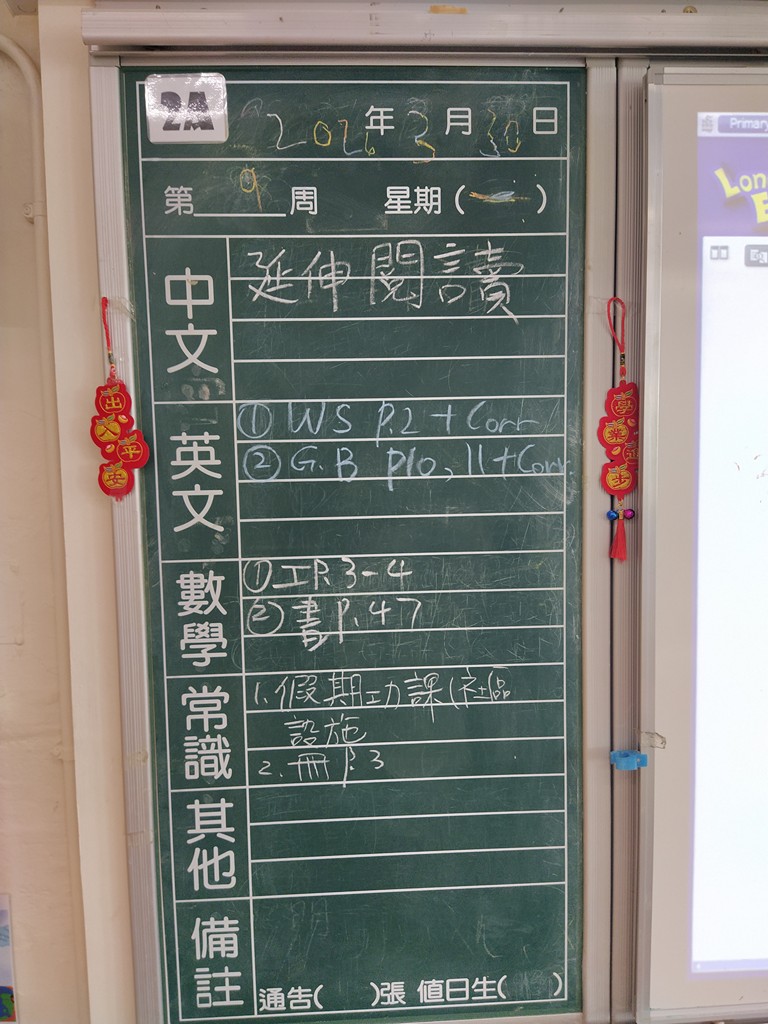 2A
2026年3月30日
第9周 星期( 一 )
中文
延伸閱讀
英文
① WS P.2 + Corr
② G.B P10, 11 + Corr.
數學
① 工P.3-4
② 書P.47
常識
1. 假期功課(社區
設施
2. 冊P.3
其他
備註
通告( )張 值日生( )
出入平安
學業進步
Primary
Lon
E